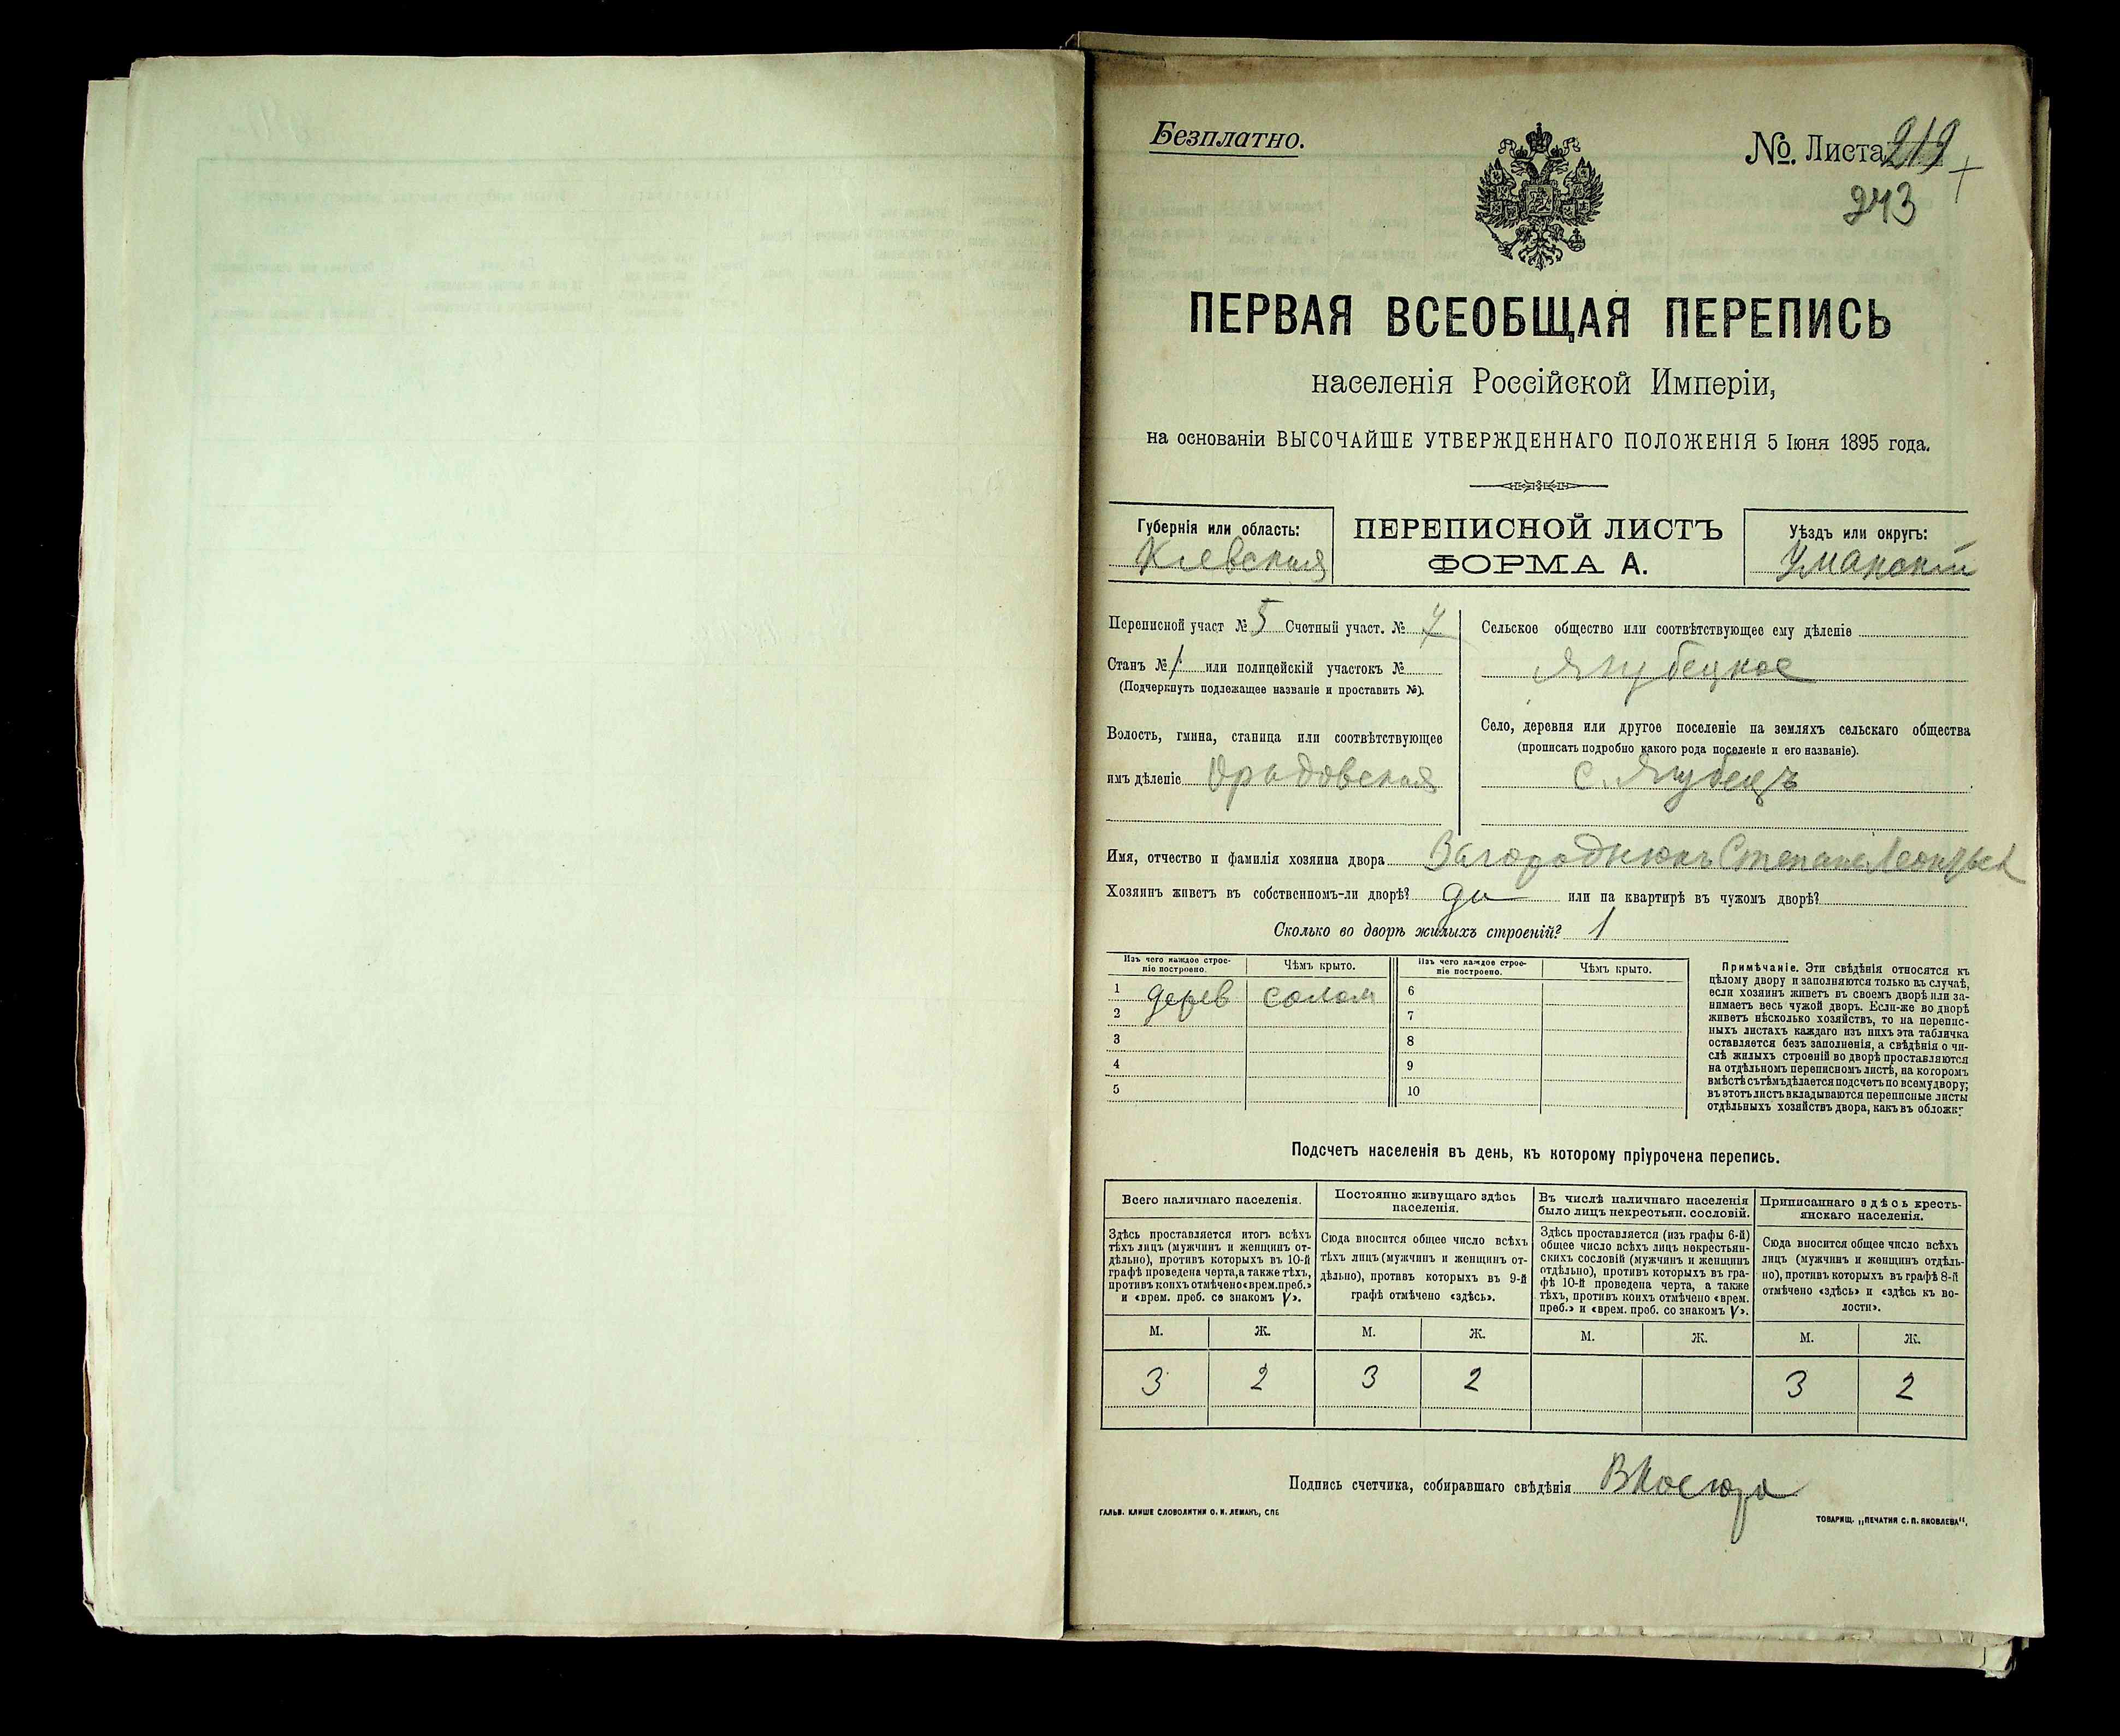 Безплатно.
№. Листа 219
243
ПЕРВАЯ ВСЕОБЩАЯ ПЕРЕПИСЬ
населенія Россійской Имперіи,
на основаніи ВЫСОЧАЙШЕ УТВЕРЖДЕННАГО ПОЛОЖЕНІЯ 5 Іюня 1895 года.
Губернія или область:
Кіевская
ПЕРЕПИСНОЙ ЛИСТЪ
ФОРМА А.
Уѣздъ или округъ:
Уманскій
Переписной участ № 5 Счетный участ. № 7
Станъ № 1 или полицейскій участокъ №
(Подчеркнуть подлежащее названіе и проставить №).
Волость, гмина, станица или соотвѣтствующее
имъ дѣленіе Орадовская
Сельское общество или соотвѣтствующее ему дѣленіе
Ягубецкое
Село, деревня или другое поселеніе на земляхъ сельскаго общества
(прописать подробно какого рода поселеніе и его названіе).
с. Ягубецъ
Имя, отчество и фамилія хозяина двора Загороднюкъ Степанъ
Хозяинъ живетъ въ собственномъ-ли дворѣ? да или на квартирѣ въ чужомъ дворѣ?
Сколько во дворѣ жилыхъ строеній? 1
Изъ чего каждое строе-
ніе построено.
Чѣмъ крыто.
Изъ чего каждое строе-
ніе построено.
Чѣмъ крыто.
1 дерев солом 6
2 7
3 8
4 9
5 10
Примѣчаніе. Эти свѣдѣнія относятся къ
цѣлому двору и заполняются только въ случаѣ,
если хозяинъ живетъ въ своемъ дворѣ или за-
нимаетъ весь чужой дворъ. Если-же во дворѣ
живетъ нѣсколько хозяйствъ, то на перепис-
ныхъ листахъ каждаго изъ нихъ эта табличка
оставляется безъ заполненія, а свѣдѣнія о чи-
слѣ жилыхъ строеній во дворѣ проставляются
на отдѣльномъ переписномъ листѣ, на которомъ
вмѣстѣ съ тѣмъ дѣлается подсчетъ по всему двору;
въ этотъ листъ вкладываются переписные листы
отдѣльныхъ хозяйствъ двора, какъ въ обложку
Подсчетъ населенія въ день, къ которому пріурочена перепись.
Всего наличнаго населенія.
Здѣсь проставляется итогъ всѣхъ
тѣхъ лицъ (мужчинъ и женщинъ от-
дѣльно), противъ которыхъ въ 10-й
графѣ проведена черта, а также тѣхъ,
противъ коихъ отмѣчено «врем. преб.»
и «врем. преб. со знакомъ V».
Постоянно живущаго здѣсь
населенія.
Сюда вносится общее число всѣхъ
тѣхъ лицъ (мужчинъ и женщинъ от-
дѣльно), противъ которыхъ въ 9-й
графѣ отмѣчено «здѣсь».
Въ числѣ наличнаго населенія
было лицъ некрестьян. сословій.
Здѣсь проставляется (изъ графы 6-й)
общее число всѣхъ лицъ некрестьян-
скихъ сословій (мужчинъ и женщинъ
отдѣльно), противъ которыхъ въ гра-
фѣ 10-й проведена черта, а также
тѣхъ, противъ коихъ отмѣчено «врем.
преб.» и «врем. преб. со знакомъ V».
Приписаннаго здѣсь кресть-
янскаго населенія.
Сюда вносится общее число всѣхъ
лицъ (мужчинъ и женщинъ отдѣль-
но), противъ которыхъ въ графѣ 8-й
отмѣчено «здѣсь» и «здѣсь къ во-
лости».
М. Ж. М. Ж. М. Ж. М. Ж.
3 2 3 2 3 2
Подпись счетчика, собиравшаго свѣдѣнія
ГАЛЬВ. КЛИШЕ СЛОВОЛИТНИ О. И. ЛЕМАНЪ, СПБ
ТОВАРИЩ. „ПЕЧАТНЯ С. П. ЯКОВЛЕВА".